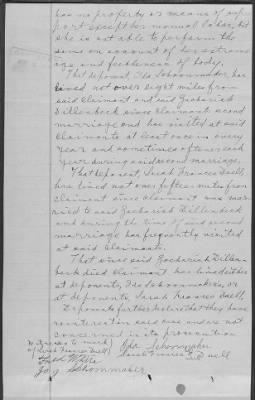 has no property or means of sup
port except her manual labor, but
she is not able to perform the
same on account of her extreme
age and feebleness of body.
That deponent, Ida Schoonmaker, has
lived not over eight miles from
said claimant and said Zachariah
Dillenback since claimants second
marriage and has visited at said
claimants at least once in every
year and sometimes oftener each
year during said second marriage.
That deponent, Sarah Frances Quell,
has lived not over fifteen miles from
claimant since claimant was mar
ried to said Zachariah Dillenback
and during the time of said second
marriage has frequently visited
at said claimants.
That since said Zachariah Dillen
back died claimant has lived either
at deponents, Ida Schoonmakers, or
at deponents, Sarah Frances Quell,
Deponents further before that they have
no interest in said case and are not
concerned in its prosecution
Witnesses to mark
of Sarah Frances Quell
Ida Schoonmaker
Sarah Frances Quell
Fred White
Jay Schoonmaker